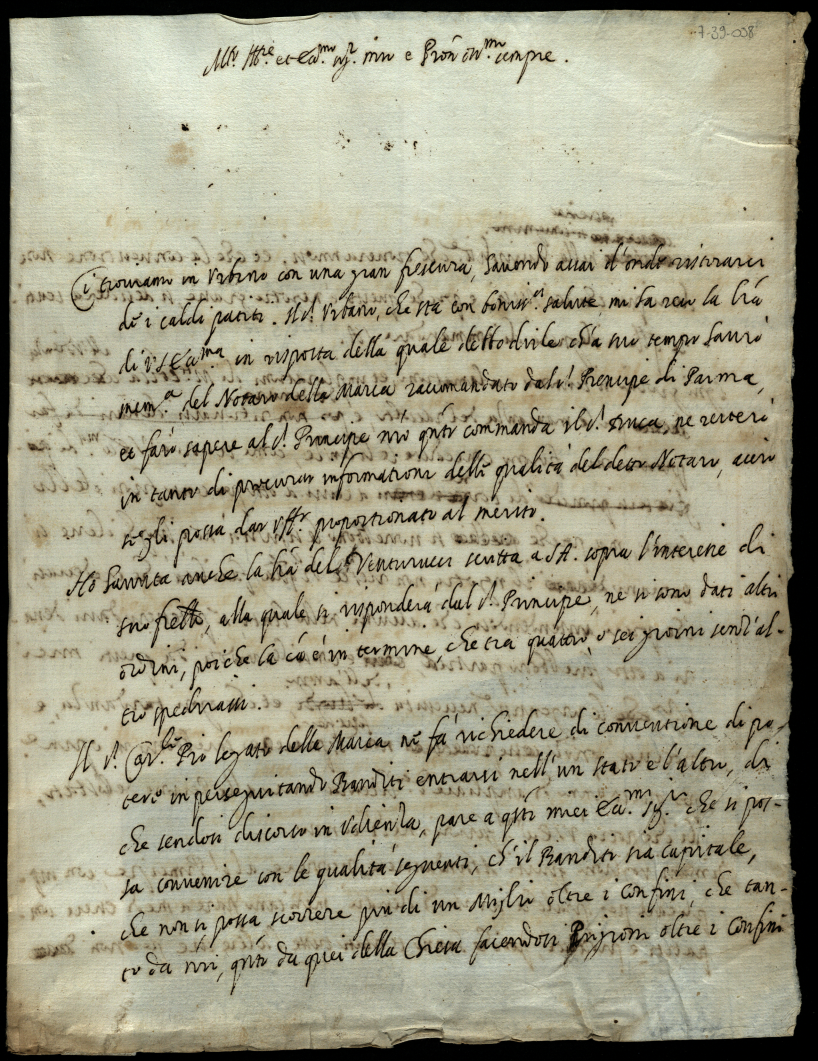 7-39-008
Ill.re et Ecc.mo sig.r mio e Pron oss.mo sempre.
Ci troviamo in Urbino con una gran frescura, havendo assai d'onde ristorarci
de i caldi patiti. Il s.r Urbano, che sta con boniss.a salute, mi ha reso la lra
di V S Ecc.ma in risposta della quale debbo dirle ch'a suo tempo havrò
mem.a del Notaro della Marca racomandato dal s.r Prencipe di Parma,
et farò sapere al s.r Principe nro qnto commanda il s.r Duca, ne resterò
in tanto di procurar informationi delle qualità del detto Notaro, acciò
se gli possa dar uff.o proportionato al merito.
Ho havuta anche la lra del s.r Venturucci scritta a S A. sopra l'interesse di
suo frello, alla quale si risponderà dal s.r Principe, ne si sono dati altri
ordini, poiche la ca è in termine, che tra quattro, o sei giorni senz'al-
tro spedirassi.
Il s.r Car.le Pio legato della Marca ne fà richiedere di conventione di po-
tere in perseguitando Banditi entrarsi nell'un stato e l'altro, di
che sendosi discorso in Udienza, pare a qsti miei Ecc.mi sig.ri che si pos-
sa convenire con le qualità seguenti, ch'il Bandito sia capitale,
che non si possa scorrere piu di un Miglio oltre i confini, che tan-
to da nri, qnto da quei della Chiesa facendosi Prigioni oltre i Confini